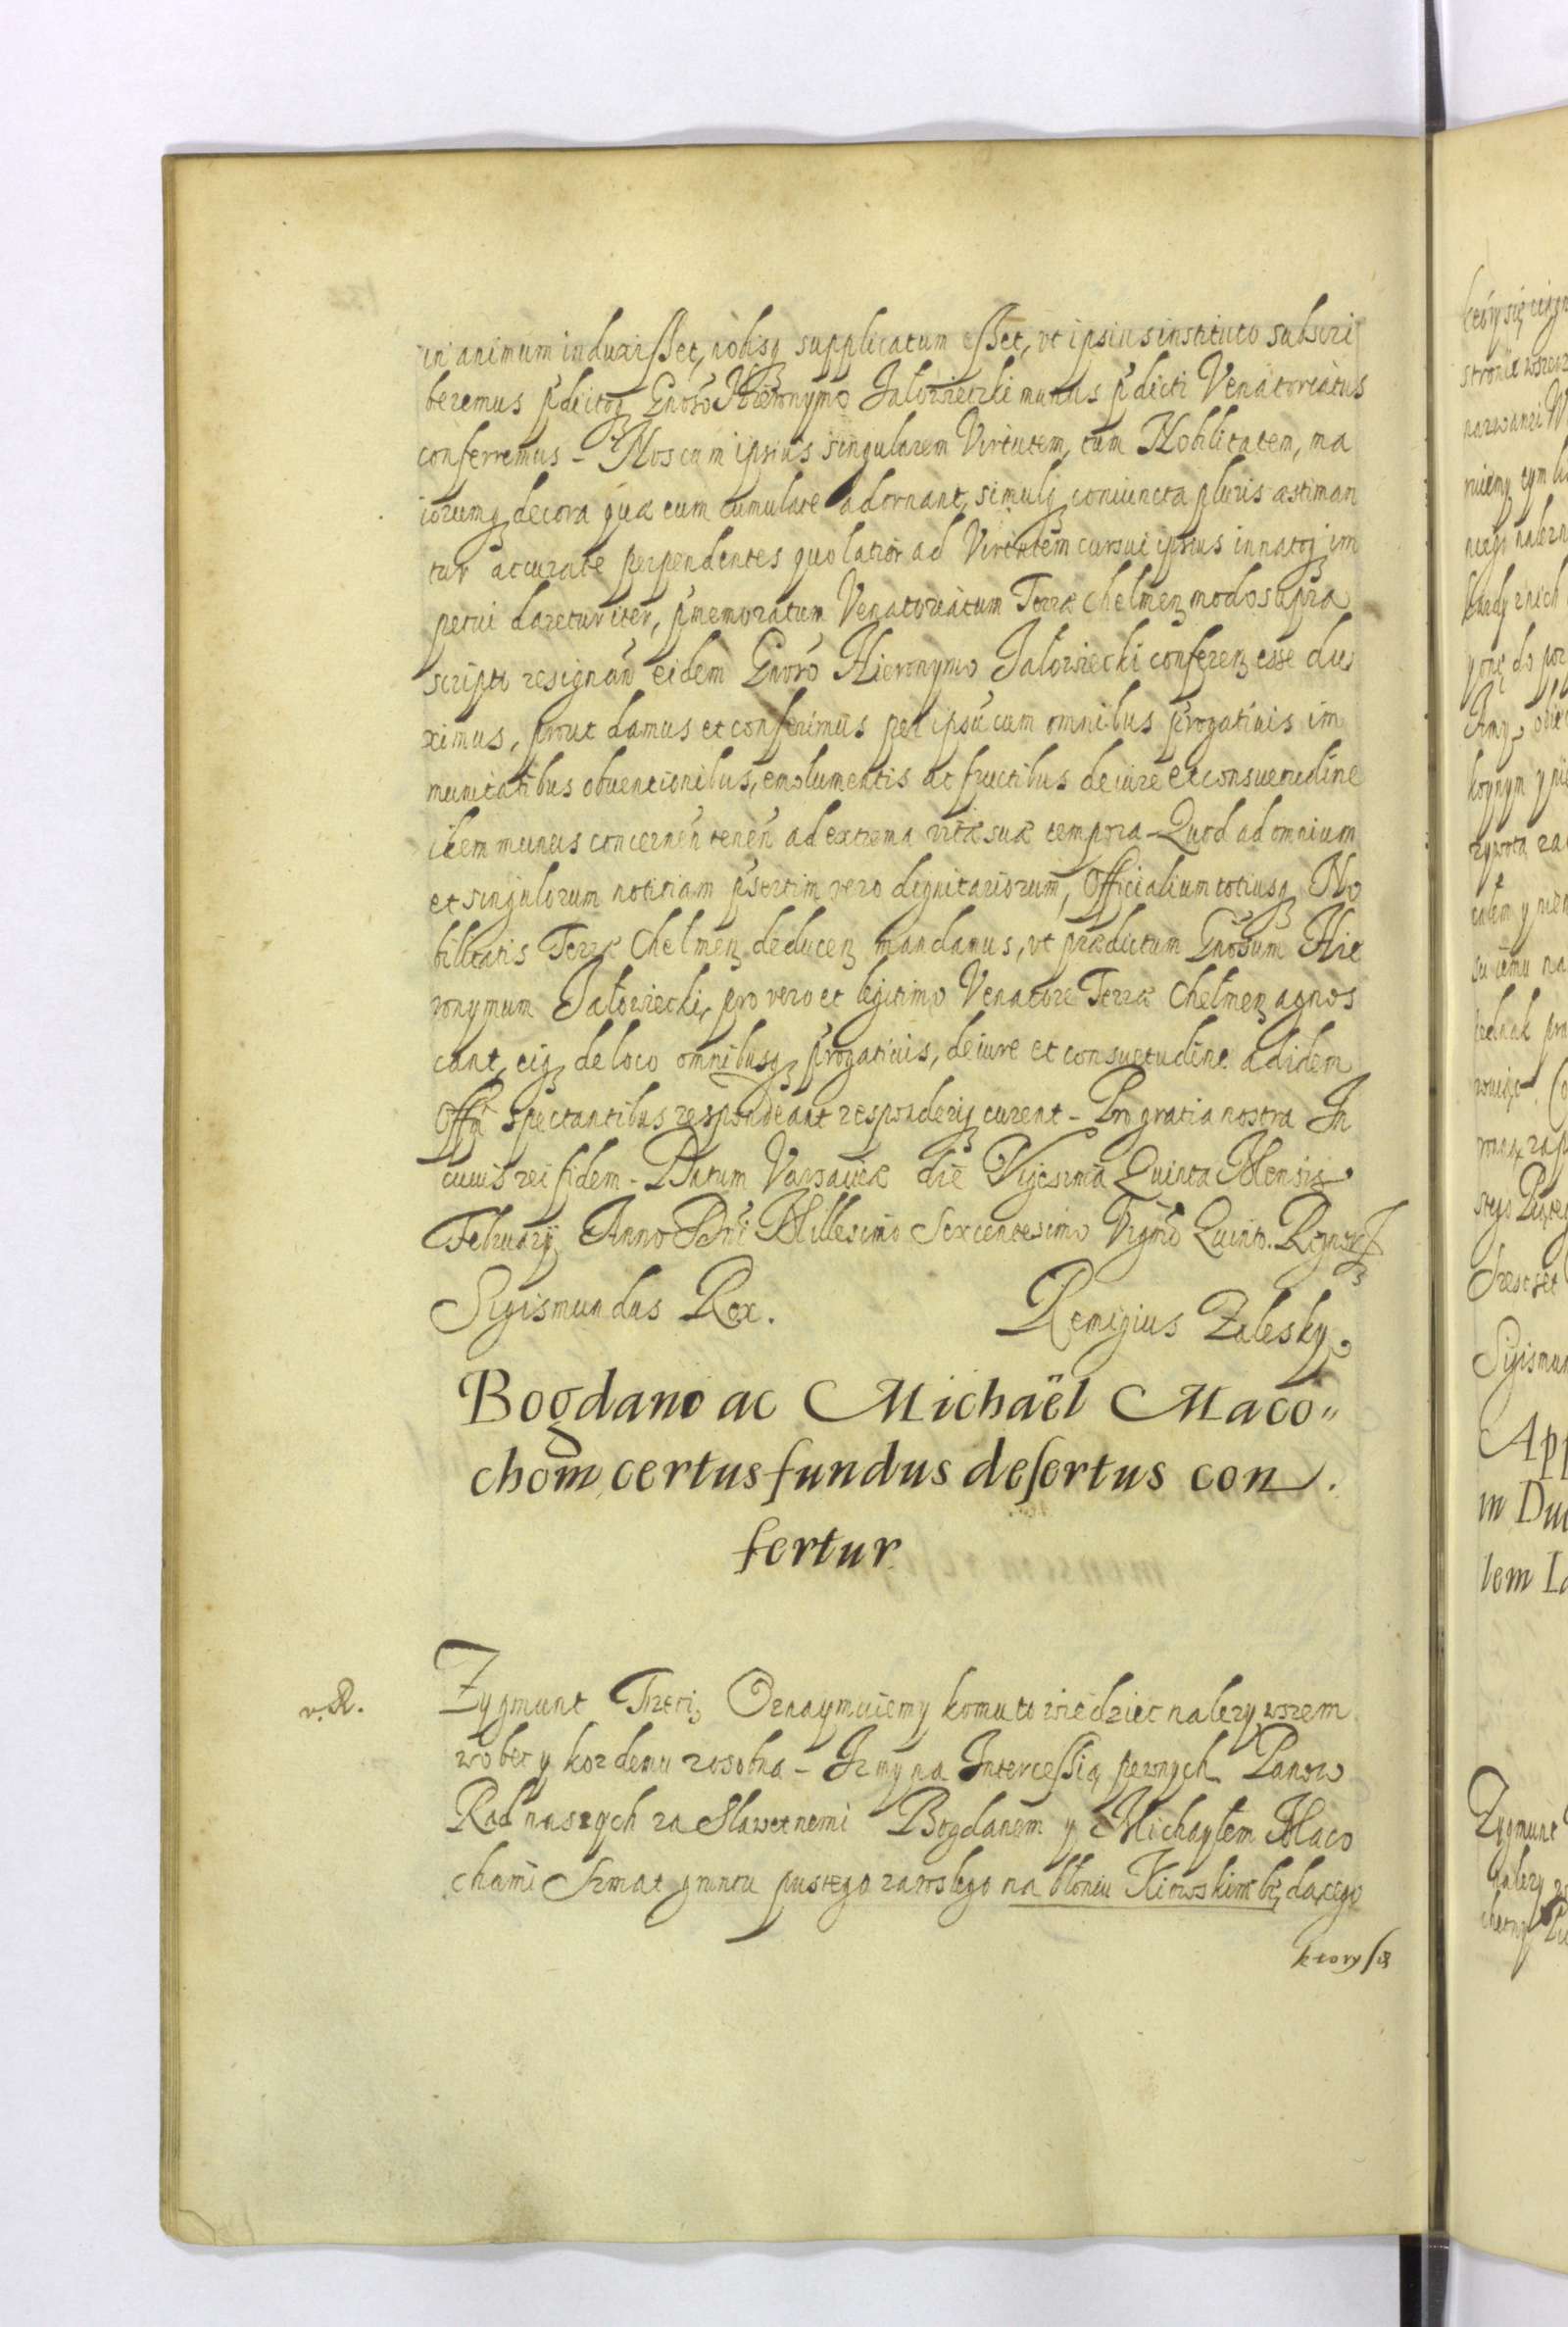 in animum induxisset, nobisq supplicatum esset, vt ipsius instituto subscri
beremus pdictoq Gnoso Hieronymo Jałowieczki munus pdicti Venatoriatus
conferremus - Nos cum ipsius singularem Virtutem, tum Nobilitatem, ma
iorumq decora quæ eum cumulate adornant, simulq coniuncta pluris æstiman
tur accurate perpendentes quo latior ad Virtutem cursui ipsius innatoq im
petui daretur iter, pmemoratum Venatoriatum Terræ Chelmen modo supra
scripto resignan eidem Gnoso Hieronymo Jałowiecki conferen esse du
ximus, prout damus et conferimus per ipsu cum omnibus prrogatiuis im
munitatibus obuentionibus, emolumentis ac fructibus de iure et consuetudine
idem munus concernen tenen ad extrema vitæ suæ tempora - Quod ad omnium
et singulorum notitiam psertim vero dignitariorum, Officialium totiusq No
bilitatis Terræ Chelmen deducen mandamus, vt prædictum Gnosum Hie
ronymum Jałowiecki, pro vero et legitimo Venatore Terræ Chelmen agnos
cant, eiq de loco omnibusq prrogatiuis, de iure et consuetudine ad idem
Offm spectantibus respondeant responderiq curent - Pro gratia nostra In
cuius rei fidem - Datum Varsauiæ die Vigesima Quinta Mensis
Februarij Anno Dni Millesimo Sexcentesimo Vigmo Quinto. Regnor
Sigismundus Rex. Remigius Zalesky
Bogdano ac Michaël Maco"
chom certus fundus desertus con
fertur
v. R.
Zygmunt Trzeci, Oznaymuiemy komu to wiedziec nalezy, wszem
wobec y kozdemu zosobna - Iz my na Intercessią pewnych Panow
Rad naszych za Slawetnemi Bogdanem y Michayłem Maco
chami Szmat gruntu pustego zaroslego na błoniu Kiowskim będącego
ktory się